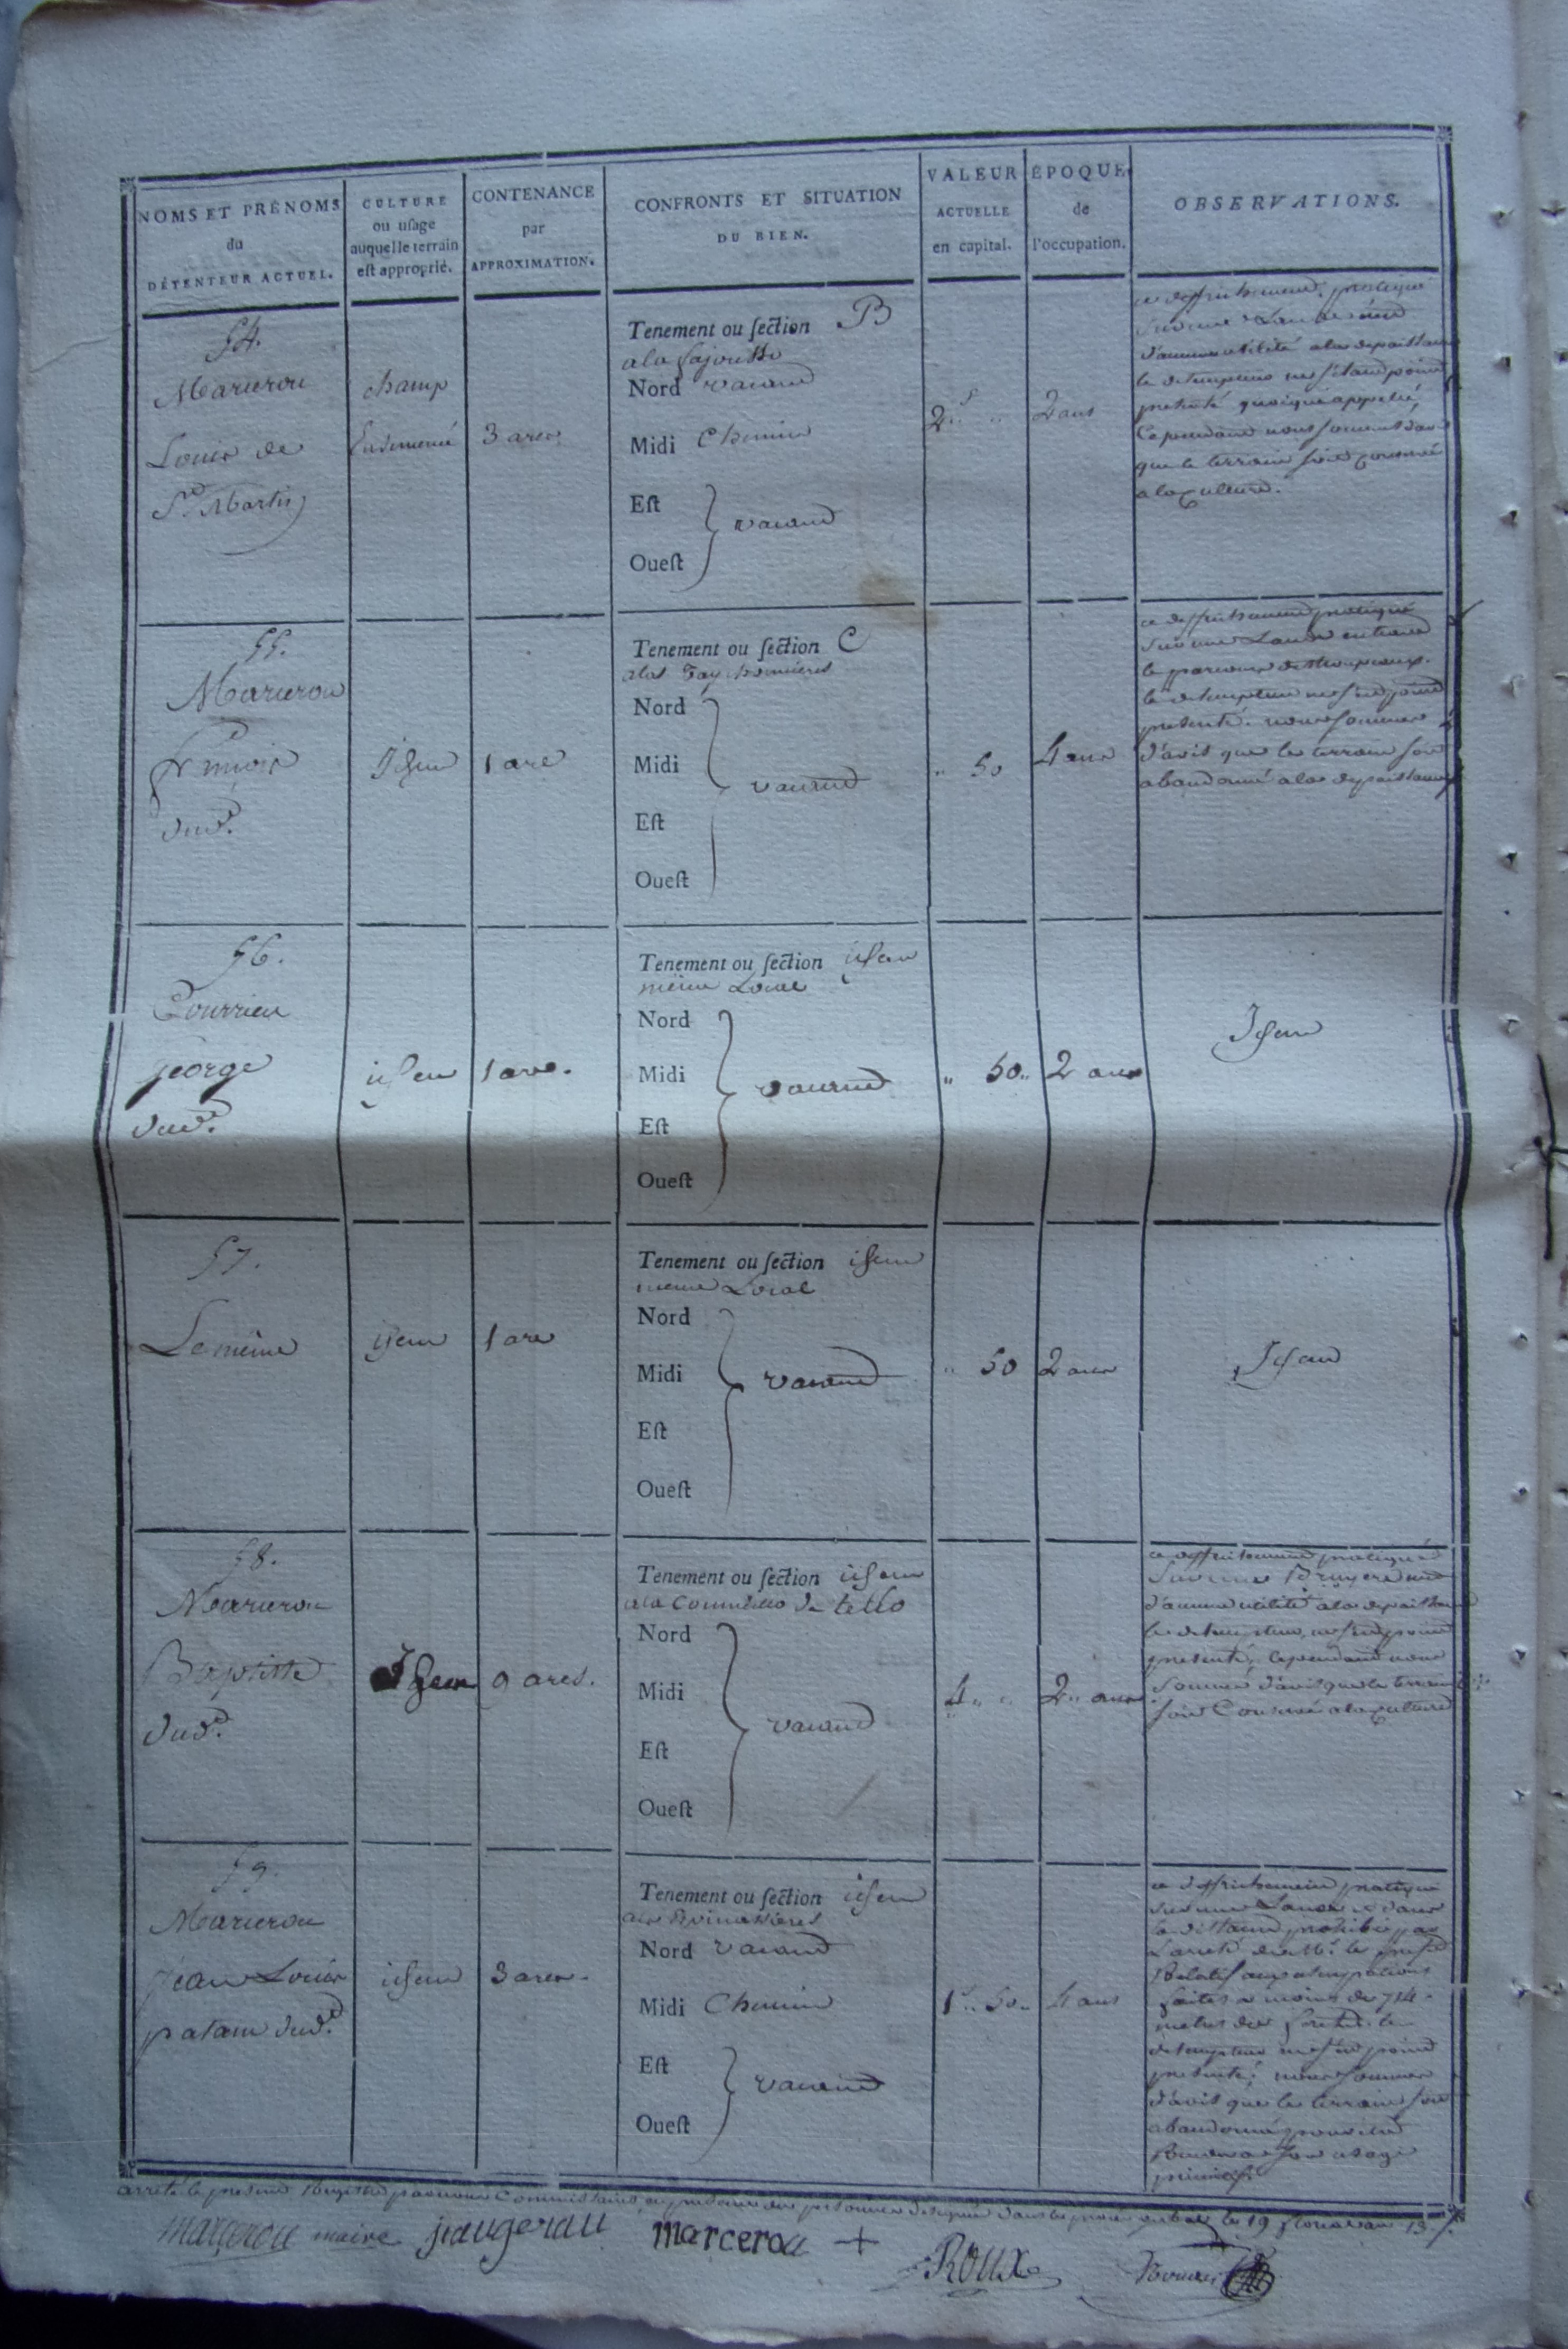 NOMS ET PRÉNOMS
du
DÉTENTEUR ACTUEL.
CULTURE
ou uſage
auquel le terrain
eſt approprié.
CONTENANCE
par
APPROXIMATION.
CONFRONTS ET SITUATION
DU BIEN.
VALEUR
ACTUELLE
en capital.
ÉPOQUE
de
l'occupation.
OBSERVATIONS.
54.
Marcerou
Louis de
St. Martin
champ
Ensemencé
3 ares
Tenement ou ſection B
a la
Nord vacand
Midi Chemin
Eſt
vacand
Oueſt
2
2 ans
ce deffrichement pratiqué
sur une Lande
d'aucune utilité a la depaissance
le detempteur ne s'etand poind
presenté quoique appellé,
Cependand nous sommes d'avis
que le terrain soit conservé
a la Culture.
55.
Marcerou
dud.
Idem
1 are
Tenement ou ſection C
a las
Nord
Midi
vacand
Eſt
Oueſt
" 50
4 ans
ce deffrichement pratiqué
sur une Lande
le parcours des troupeaux.
le detempteur ne s'est poind
presenté. nous sommes
d'avis que le terrain soit
abandonné a la depaissance
56.
Pourrieu
george
dud.
idem
1 are.
Tenement ou ſection idem
même Local
Nord
Midi
vacand
Eſt
Oueſt
" 50 "
2 ans
Idem
57.
Le même
idem
1 are
Tenement ou ſection idem
meme Local
Nord
Midi
vacand
Eſt
Oueſt
" 50
2 ans
Idem
58.
Marcerou
Baptiste
dud.
Idem
9 ares.
Tenement ou ſection idem
a la de
Nord
Midi
vacand
Eſt
Oueſt
4 " "
2 " ans
ce deffrichement pratiqué
sur une Bruyere
d'aucune utilité a la depaissance
le detempteur ne s'est poind
presenté, cependand nous
sommes d'avis que le terrain
soit Conservé a la culture
59.
Marcerou
jean Louis
patam dud.
idem
3 ares.
Tenement ou ſection idem
aux
Nord vacand
Midi Chemin
Eſt
vacand
Oueſt
1 " 50 "
4 ans
ce deffrichement pratiqué
sur une Lande et dans
la distance prohibée par
L'arreté de Mr. le prefet
Relatif aux usurpations
faites a moins de 714
metres des forets. le
detempteur ne s'est poind
presenté; nous sommes
d'avis que le terrain soit
abandonné pour etre
Rendu a son usage
primitif
arreté le presend Registre par nous Commissaires en presence des personnes designées dans le proces verbal le 19 floreal an 13.
marcerou maire jaugerau marcerou +
ROUX